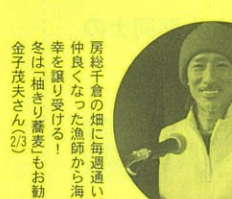 房総千倉の畑に毎週通い
仲良くなった漁師から海
幸を譲り受ける！
冬は「柚きり蕎麦」もお勧
金子茂夫さん(2/3)